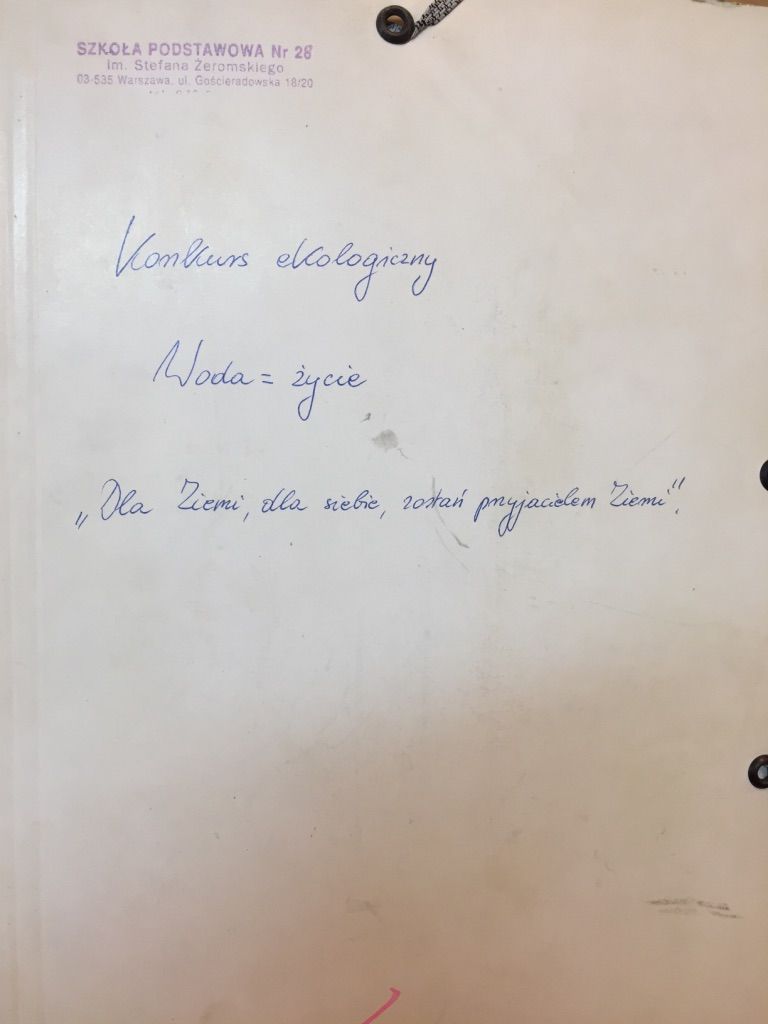 SZKOŁA PODSTAWOWA Nr 28
im. Stefana Żeromskiego
03-535 Warszawa, ul. Gościeradowska 18/20
Konkurs ekologiczny
Woda = życie
„Dla Ziemi, dla siebie, zostań przyjacielem Ziemi”.